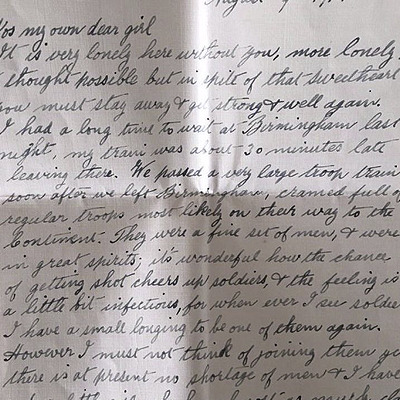 August 9
my own dear girl
It is very lonely here without you, more lonely
thought possible but in spite of that sweetheart
you must stay away & get strong & well again.
I had a long time to wait at Birmingham last
night, my train was about 30 minutes late
leaving there. We passed a very large troop train
soon after we left Birmingham, cramed full of
regular troops most likely on their way to the
Continent. They were a fine set of men, & were
in great spirits; it's wonderful how the chance
of getting shot cheers up soldiers, & the feeling is
a little bit infectious, for when ever I see soldie
I have a small longing to be one of them again.
However I must not think of joining them ye
there is at present no shortage of men & I have